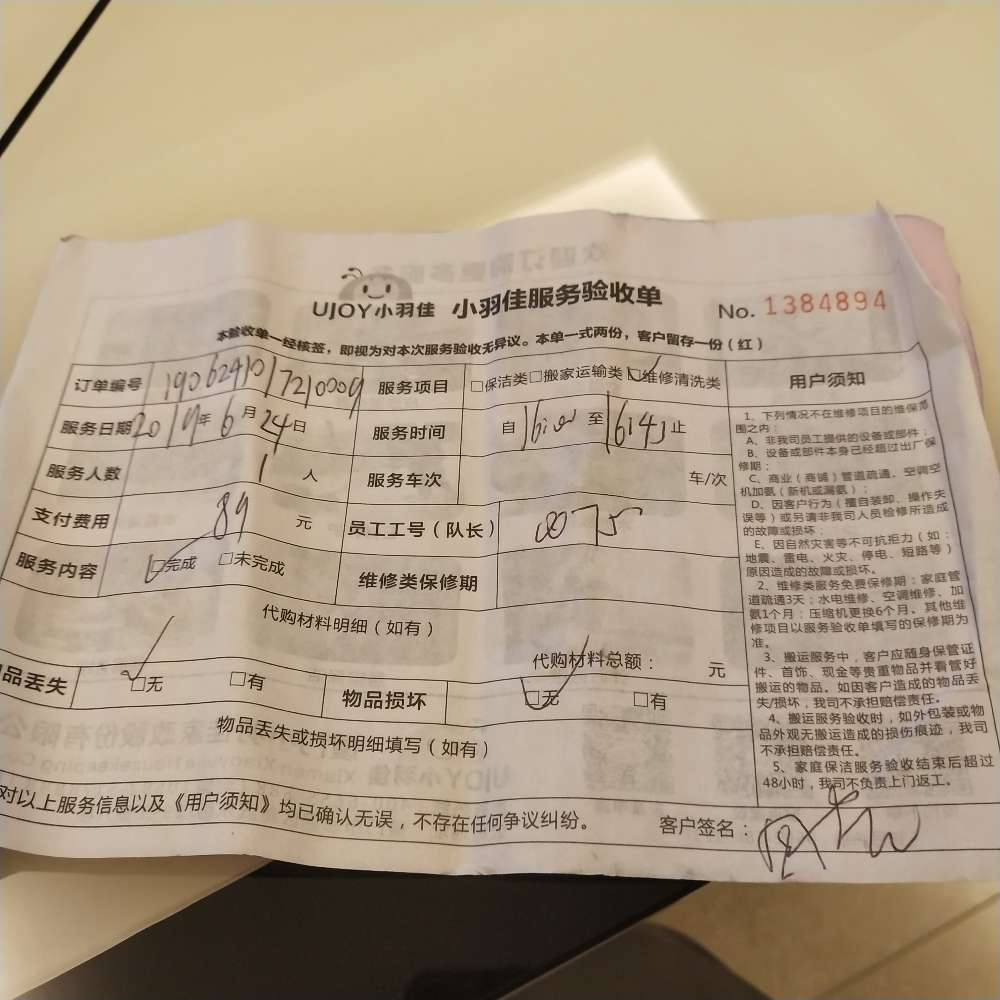 UJOY小羽佳 小羽佳服务验收单 No. 1384894
本验收单一经核签，即视为对本次服务验收无异议。本单一式两份，客户留存一份（红）
订单编号 1906241017210009 服务项目 □保洁类□搬家运输类□维修清洗类
服务日期 2019年6月24日 服务时间 自 至 止
服务人数 1 人 服务车次 车/次
支付费用 89 元 员工工号（队长） 8075
服务内容 □完成 □未完成 维修类保修期
代购材料明细（如有）
代购材料总额： 元
品丢失 □无 □有 物品损坏 □无 □有
物品丢失或损坏明细填写（如有）
对以上服务信息以及《用户须知》均已确认无误，不存在任何争议纠纷。 客户签名：
用户须知
1、下列情况不在维修项目的维保范
围之内：
A、非我司员工提供的设备或部件；
B、设备或部件本身已经超过出厂保
修期；
C、商业（商铺）管道疏通、空调空
机加氨（新机或漏氨）；
D、因客户行为（擅自装卸、操作失
误等）或另请非我司人员检修所造成
的故障或损坏；
E、因自然灾害等不可抗拒力（如：
地震、雷电、火灾、停电、短路等）
原因造成的故障或损坏。
2、维修类服务免费保修期：家庭管
道疏通3天；水电维修、空调维修、加
氨1个月；压缩机更换6个月。其他维
修项目以服务验收单填写的保修期为
准。
3、搬运服务中，客户应随身保管证
件、首饰、现金等贵重物品并看管好
搬运的物品。如因客户造成的物品丢
失/损坏，我司不承担赔偿责任。
4、搬运服务验收时，如外包装或物
品外观无搬运造成的损伤痕迹，我司
不承担赔偿责任。
5、家庭保洁服务验收结束后超过
48小时，我司不负责上门返工。